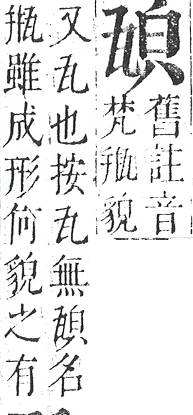 舊註音
梵瓶貌
又瓦也按瓦無名
瓶雖成形何貌之有